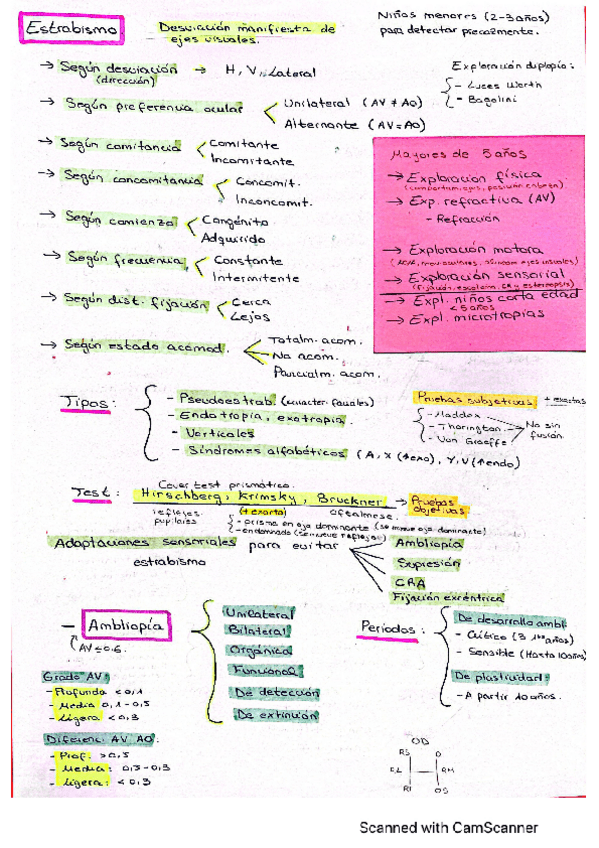 Estrabismo
Desviación manifiesta de
ejes visuales.
Niños menores (2-3 años)
para detectar precozmente.
→ Según desviación → H, V, Lateral
(dirección)
Exploración diplopía:
- Luces Worth
- Bagolini
→ Según preferencia ocular
Unilateral (AV ≠ AO)
Alternante (AV = AO)
→ Según comitancia
Comitante
Incomitante
→ Según concomitancia
Concomit.
Inconcomit.
→ Según comienzo
Congénito
Adquirido
→ Según frecuencia
Constante
Intermitente
→ Según dist. fijación
Cerca
Lejos
→ Según estado acomod.
Totalm. acom.
No acom.
Parcialm. acom.
Mayores de 5 años
→ Exploración física
→ Exp. refractiva (AV)
- Refracción
→ Exploración motora
→ Exploración sensorial
→ Expl. niños corta edad
< 5 años
→ Expl. microtropias
Tipos:
- Pseudoestrab. (caracter. faciales)
- Endotropia, exotropia.
- Verticales
- Síndromes alfabéticos (A, X (↑exo), Y, V (↑endo)
Pruebas subjetivas + exactas
- Maddox
- Thorington
- Von Graeffe
No sin
fusión.
Cover test prismático.
Test: Hirschberg, Krimsky, Bruckner → Pruebas
objetivas
reflejos
pupilares
(+ exacto)
- prisma en ojo dominante (se mueve ojo dominante)
- en dominado (se mueve reflejo)
Adaptaciones sensoriales para evitar
estrabismo
Ambliopía
Supresión
CRA
Fijación excéntrica
- Ambliopía
AV ≤ 0.6.
Unilateral
Bilateral
Orgánica
Funcional
De detección
De extinción
Periodos:
De desarrollo ambl.
- Crítico (3 1ºs años)
- Sensible (Hasta 10 años)
De plasticidad:
- A partir 10 años.
Grado AV:
- Profunda < 0,1
- Media 0,1 - 0,5
- Ligera < 0,3
Diferenc. AV AO:
- Prof. > 0,5
- Media: 0,3 - 0,3
- Ligera: < 0,3
OD
RS
RL
RM
RI
OS
Scanned with CamScanner